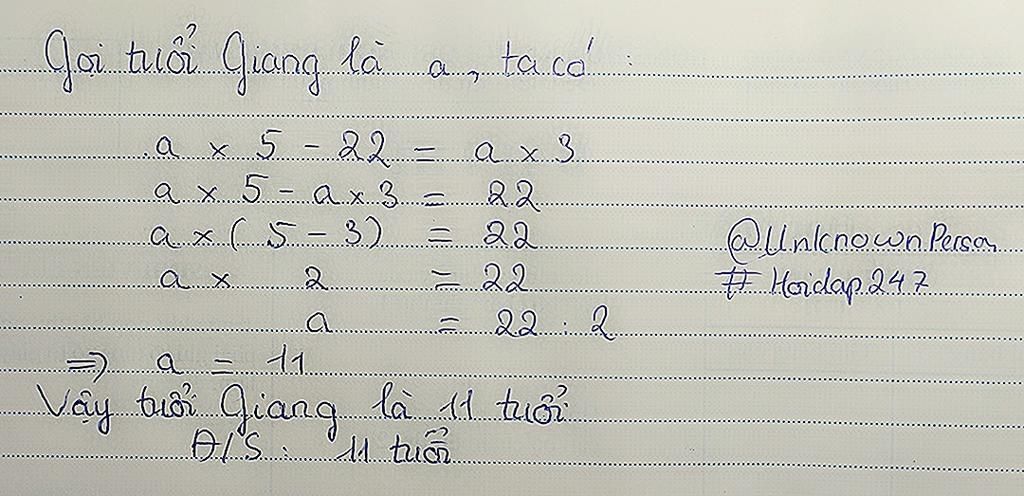 Gọi tuổi Giang là a, ta có :
a x 5 - 22 = a x 3
a x 5 - a x 3 = 22
a x ( 5 - 3) = 22
a x 2 = 22
a = 22 : 2
@UnknownPerson
# Hoidap247
=> a = 11
Vậy tuổi Giang là 11 tuổi
Đ/S : 11 tuổi